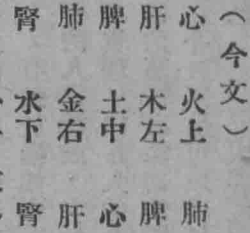 （今文）
心　火上　肺
肝　木左　脾
脾　土中　心
肺　金右　肝
腎　水下　腎